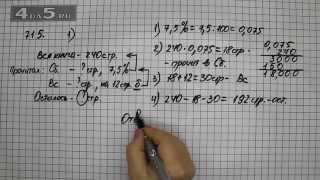 4DA5.RU
715. 1)
Вся книга - 240стр.
Прочитал: Сб - ? стр, 7,5%
Вс - ? стр, на 12стр. б
Осталось - ? стр.
1) 7,5% = 7,5:100 = 0,075
2) 240·0,075 = 18стр -
- прочит в Сб.
3) 18+12 = 30стр - Вс
4) 240-18-30 = 192стр.-ост.
0,075
240
3000
150
18,000
Отв